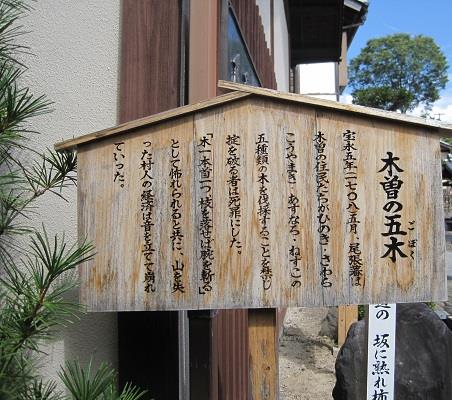 木曽の五木
ごぼく
宝永五年(一七〇八)五月、尾張藩は
木曽の住民たちがひのき・さわら
こうやまき・あすなろ・ねずこの
五種類の木を伐採することを禁じ
掟を破る者は死罪にした。
「木一本首一つ、枝を落せば腕を斬る」
として怖れられると共に、山を失
った村人の経済は音を立てて崩れ
ていった。
の 坂に熟れ柿